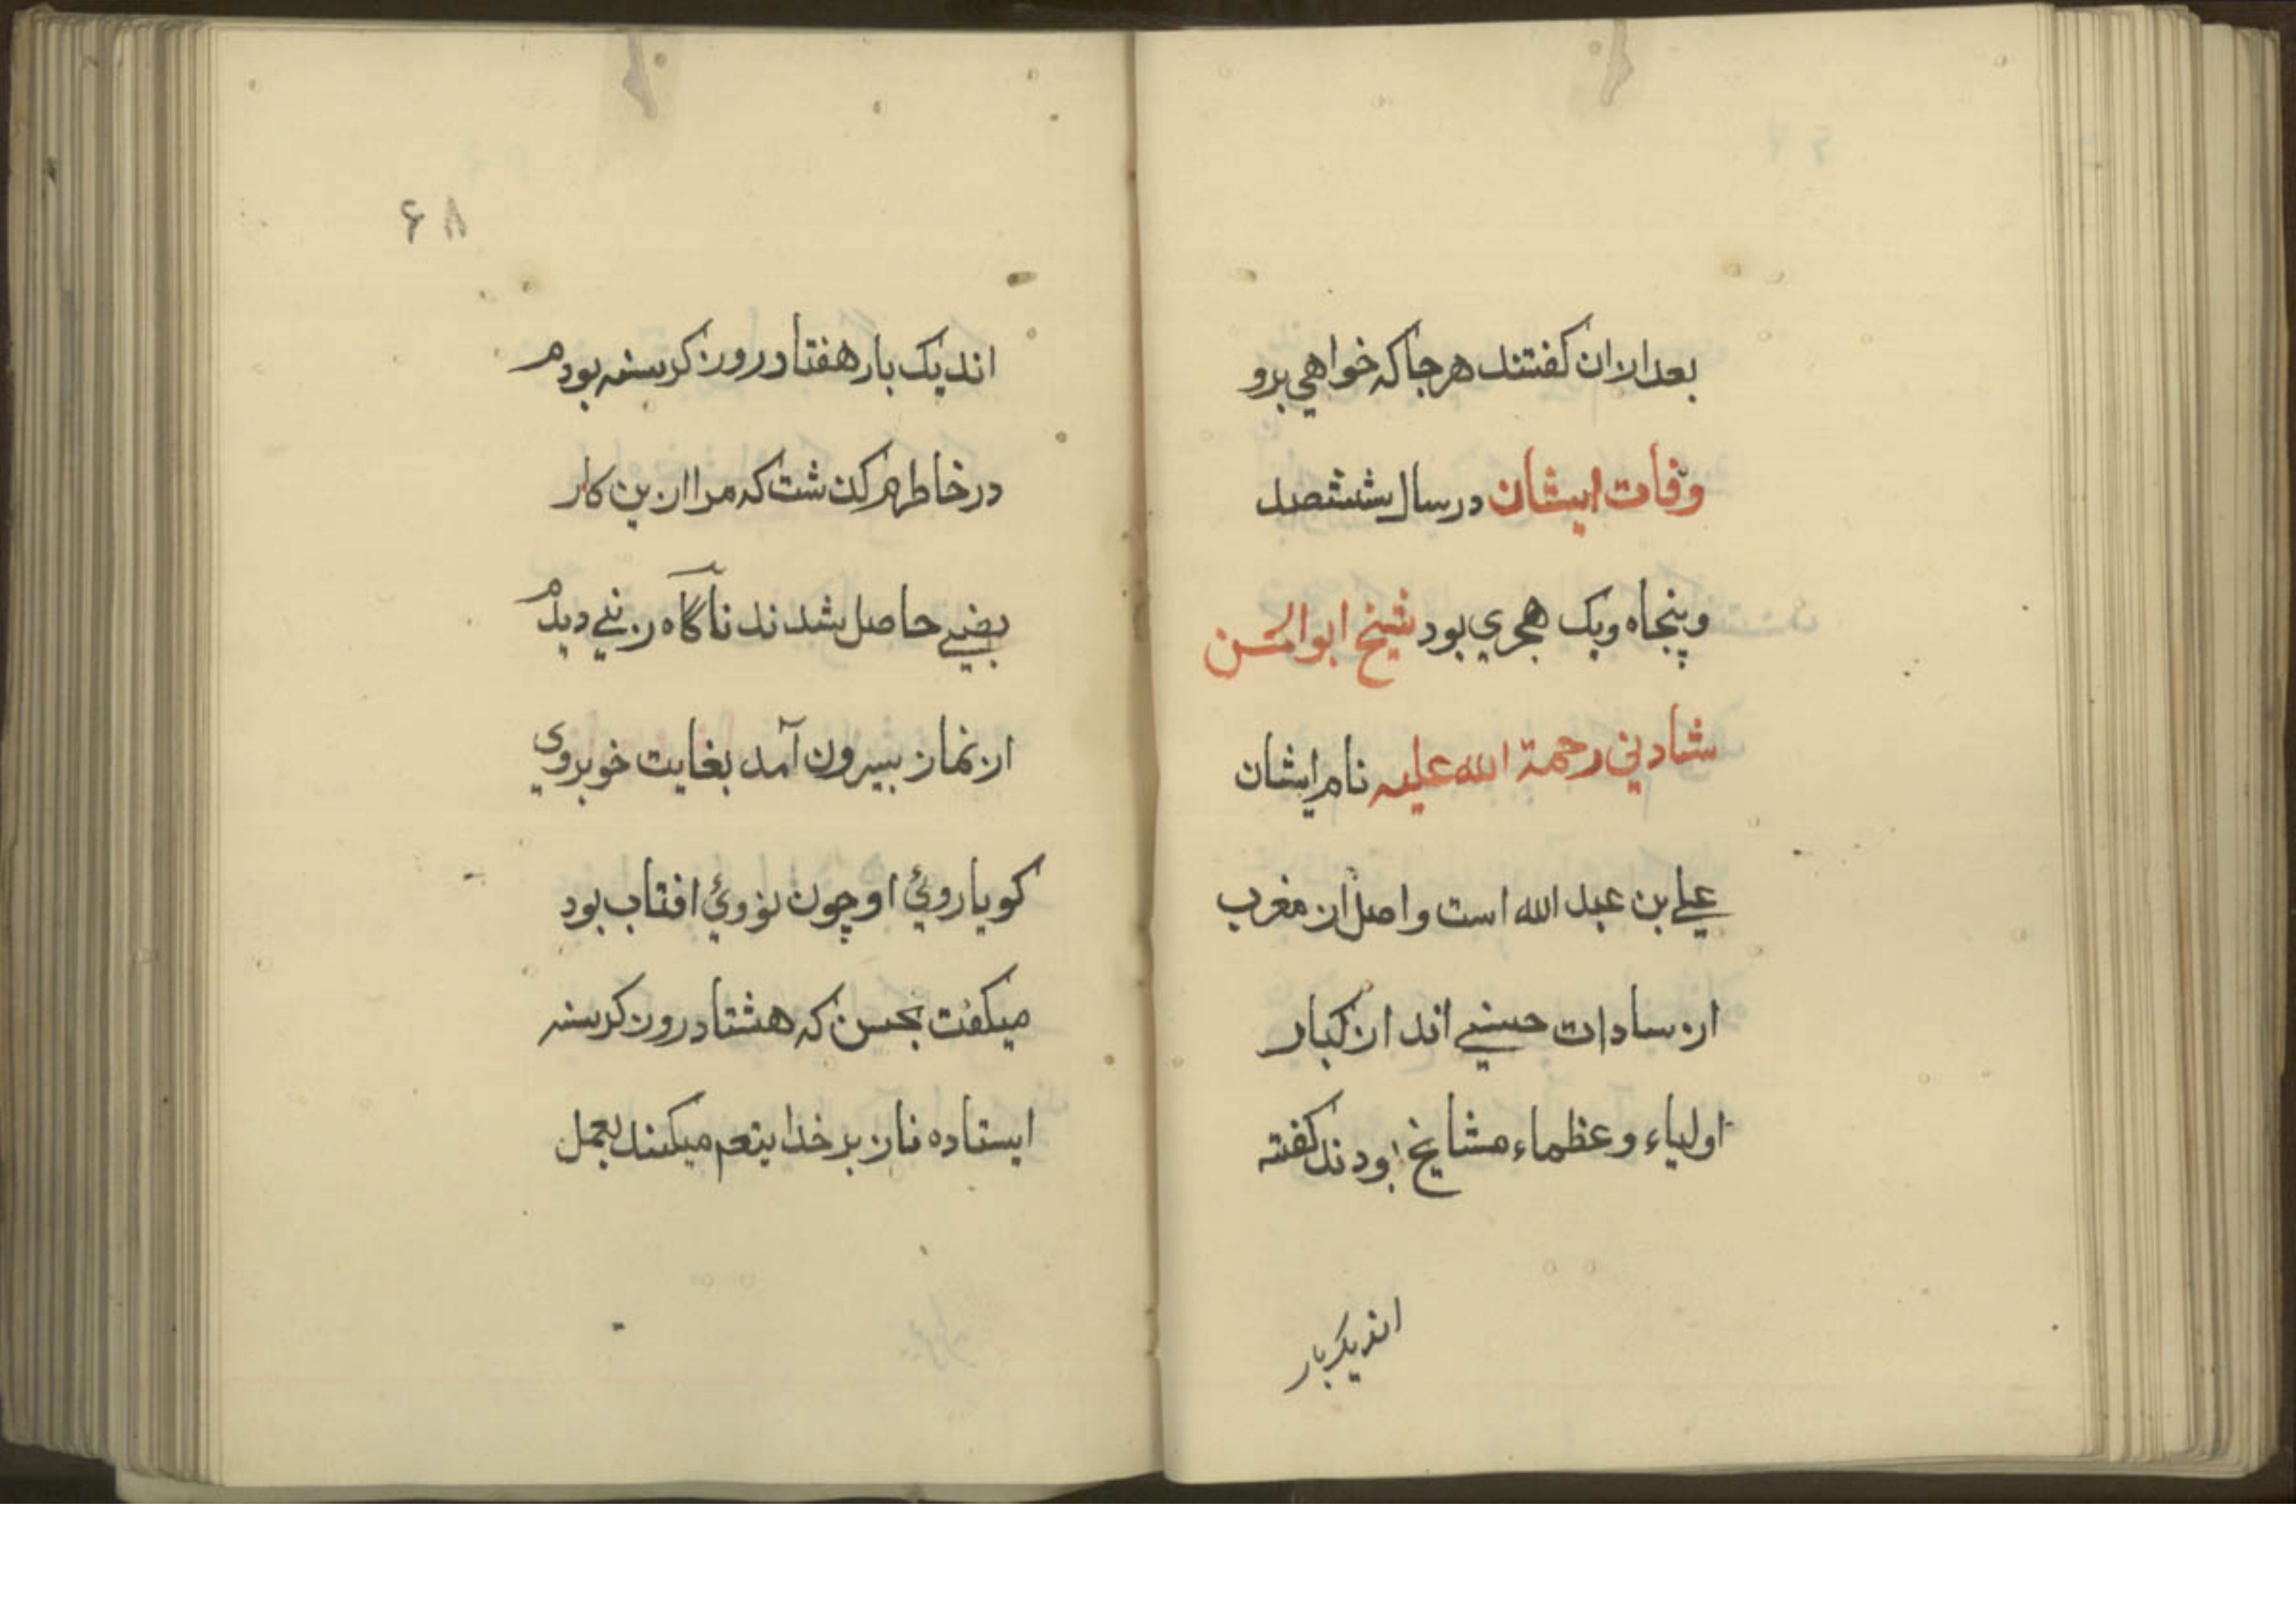 بعد ازان کفتند هرجا که خواهي برو
وفات ایشان در سال ششصد
و پنجاه ویک هجري بود شیخ ابوالحسن
شادلي رحمة الله علیه نام ایشان
علي بن عبد الله است واصل از مغرب
از سادات حسني اند از کبار
اولیاء وعظماء مشایخ بودند کفته
اندیک بار
۶۸
اندیک بار هفتاد روز کرسنه بودم
در خاطرم کذشت که مرا ازین کار
نصیبي حاصل شد ناکاه زني دیدم
از نماز بیرون آمد بغایت خوبروي
کویا روئ او چون روئ افتاب بود
میکفت کہ هشتاد روز کرسنه
ایستاده ناز بر خدا میکند بعمل